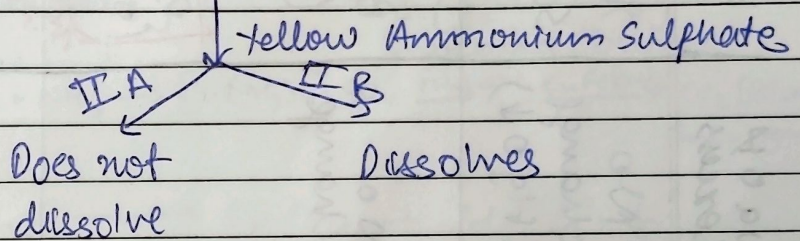 Yellow Ammonium Sulphate
II A
II B
Does not
Dissolves
dissolve